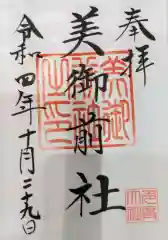 奉拝
美御前社
令和四年十月二十九日